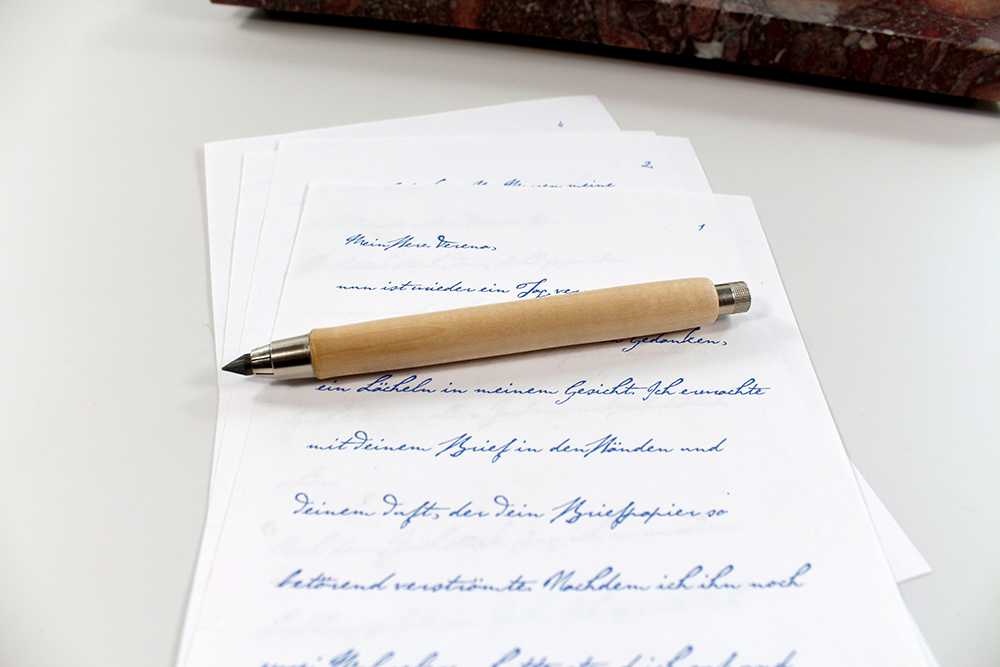 6
2
meine
1
Verena,
nun ist wieder ein Tag ve
Gedanken,
ein Lächeln in meinem Gesicht. Ich erwachte
mit deinem Brief in den Händen und
deinem Duft, der dein Briefpapier so
betörend verströmte. Nachdem ich ihn noch